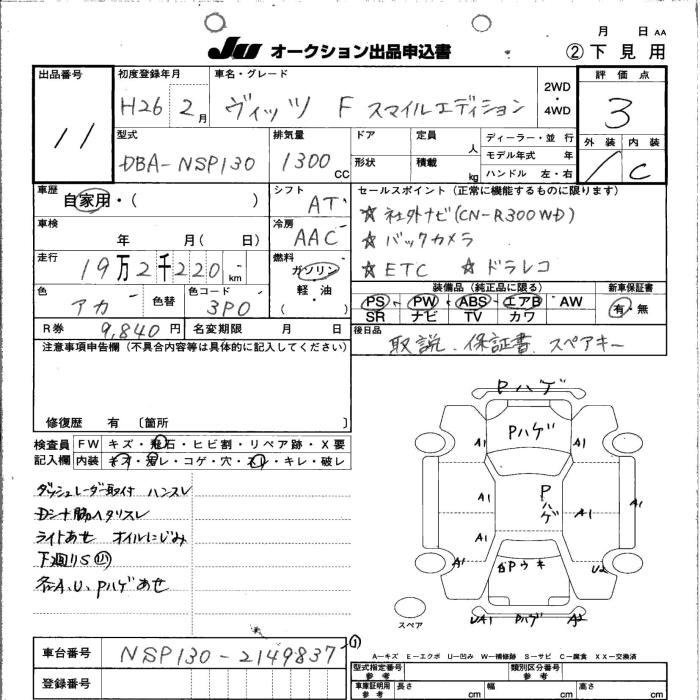 月 日 AA
JU オークション出品申込書 ②下見用
出品番号 初度登録年月 車名・グレード 評価点
11 H26 2月 ヴィッツ F スマイルエディション 2WD・4WD 3
型式 排気量 ドア 定員 人 ディーラー・並行 外装 内装
DBA-NSP130 1300CC 形状 積載 kg モデル年式 年 C
ハンドル 左・右
車歴 シフト セールスポイント(正常に機能するものに限ります)
自家用・( ) AT
☆社外ナビ(CN-R300WD)
車検 冷房
年 月( 日) AAC ☆バックカメラ
走行 燃料
19万2千220km ガソリン ☆ETC ☆ドラレコ
軽・油
( )
色 色替 色コード 装備品(純正品に限る) 新車保証書
アカ 3P0 PS PW ABS エアB AW 有・無
SR ナビ TV カワ
R券 9,840円 名変期限 月 日 後日品
取説、保証書、スペアキー
注意事項申告欄(不具合内容等は具体的に記入してください)
修復歴 有 〔箇所 〕
検査員記入欄 FW キズ・飛石・ヒビ割・リペア跡・X要
内装 キズ・汚レ・コゲ・穴・スレ・キレ・破レ
ダッシュレーダー取付 ハンスレ
Dシート脇ヘタリスレ
ライトあせ オイルにじみ
下廻りS
各A、U、Pハゲあせ
Pハゲ
Pハゲ
A1 A1
A1 Pハゲ A1 A1
A1
A1 Pウキ U2
UA1 Pハゲ A2
スペア
A－キズ E－エクボ U－凹み W－補修跡 S－サビ C－腐食 XX－交換済
車台番号 NSP130-2149837
①
型式指定番号 参考 類別区分番号 参考
登録番号
車庫証明用 参考 長さ cm 幅 cm 高さ cm